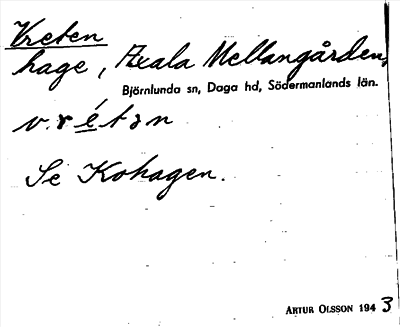 Vreten
hage, Axala Mellangården,
Björnlunda sn, Daga hd, Södermanlands län.
v.rét.n
Se Kohagen.
ARTUR OLSSON 1943